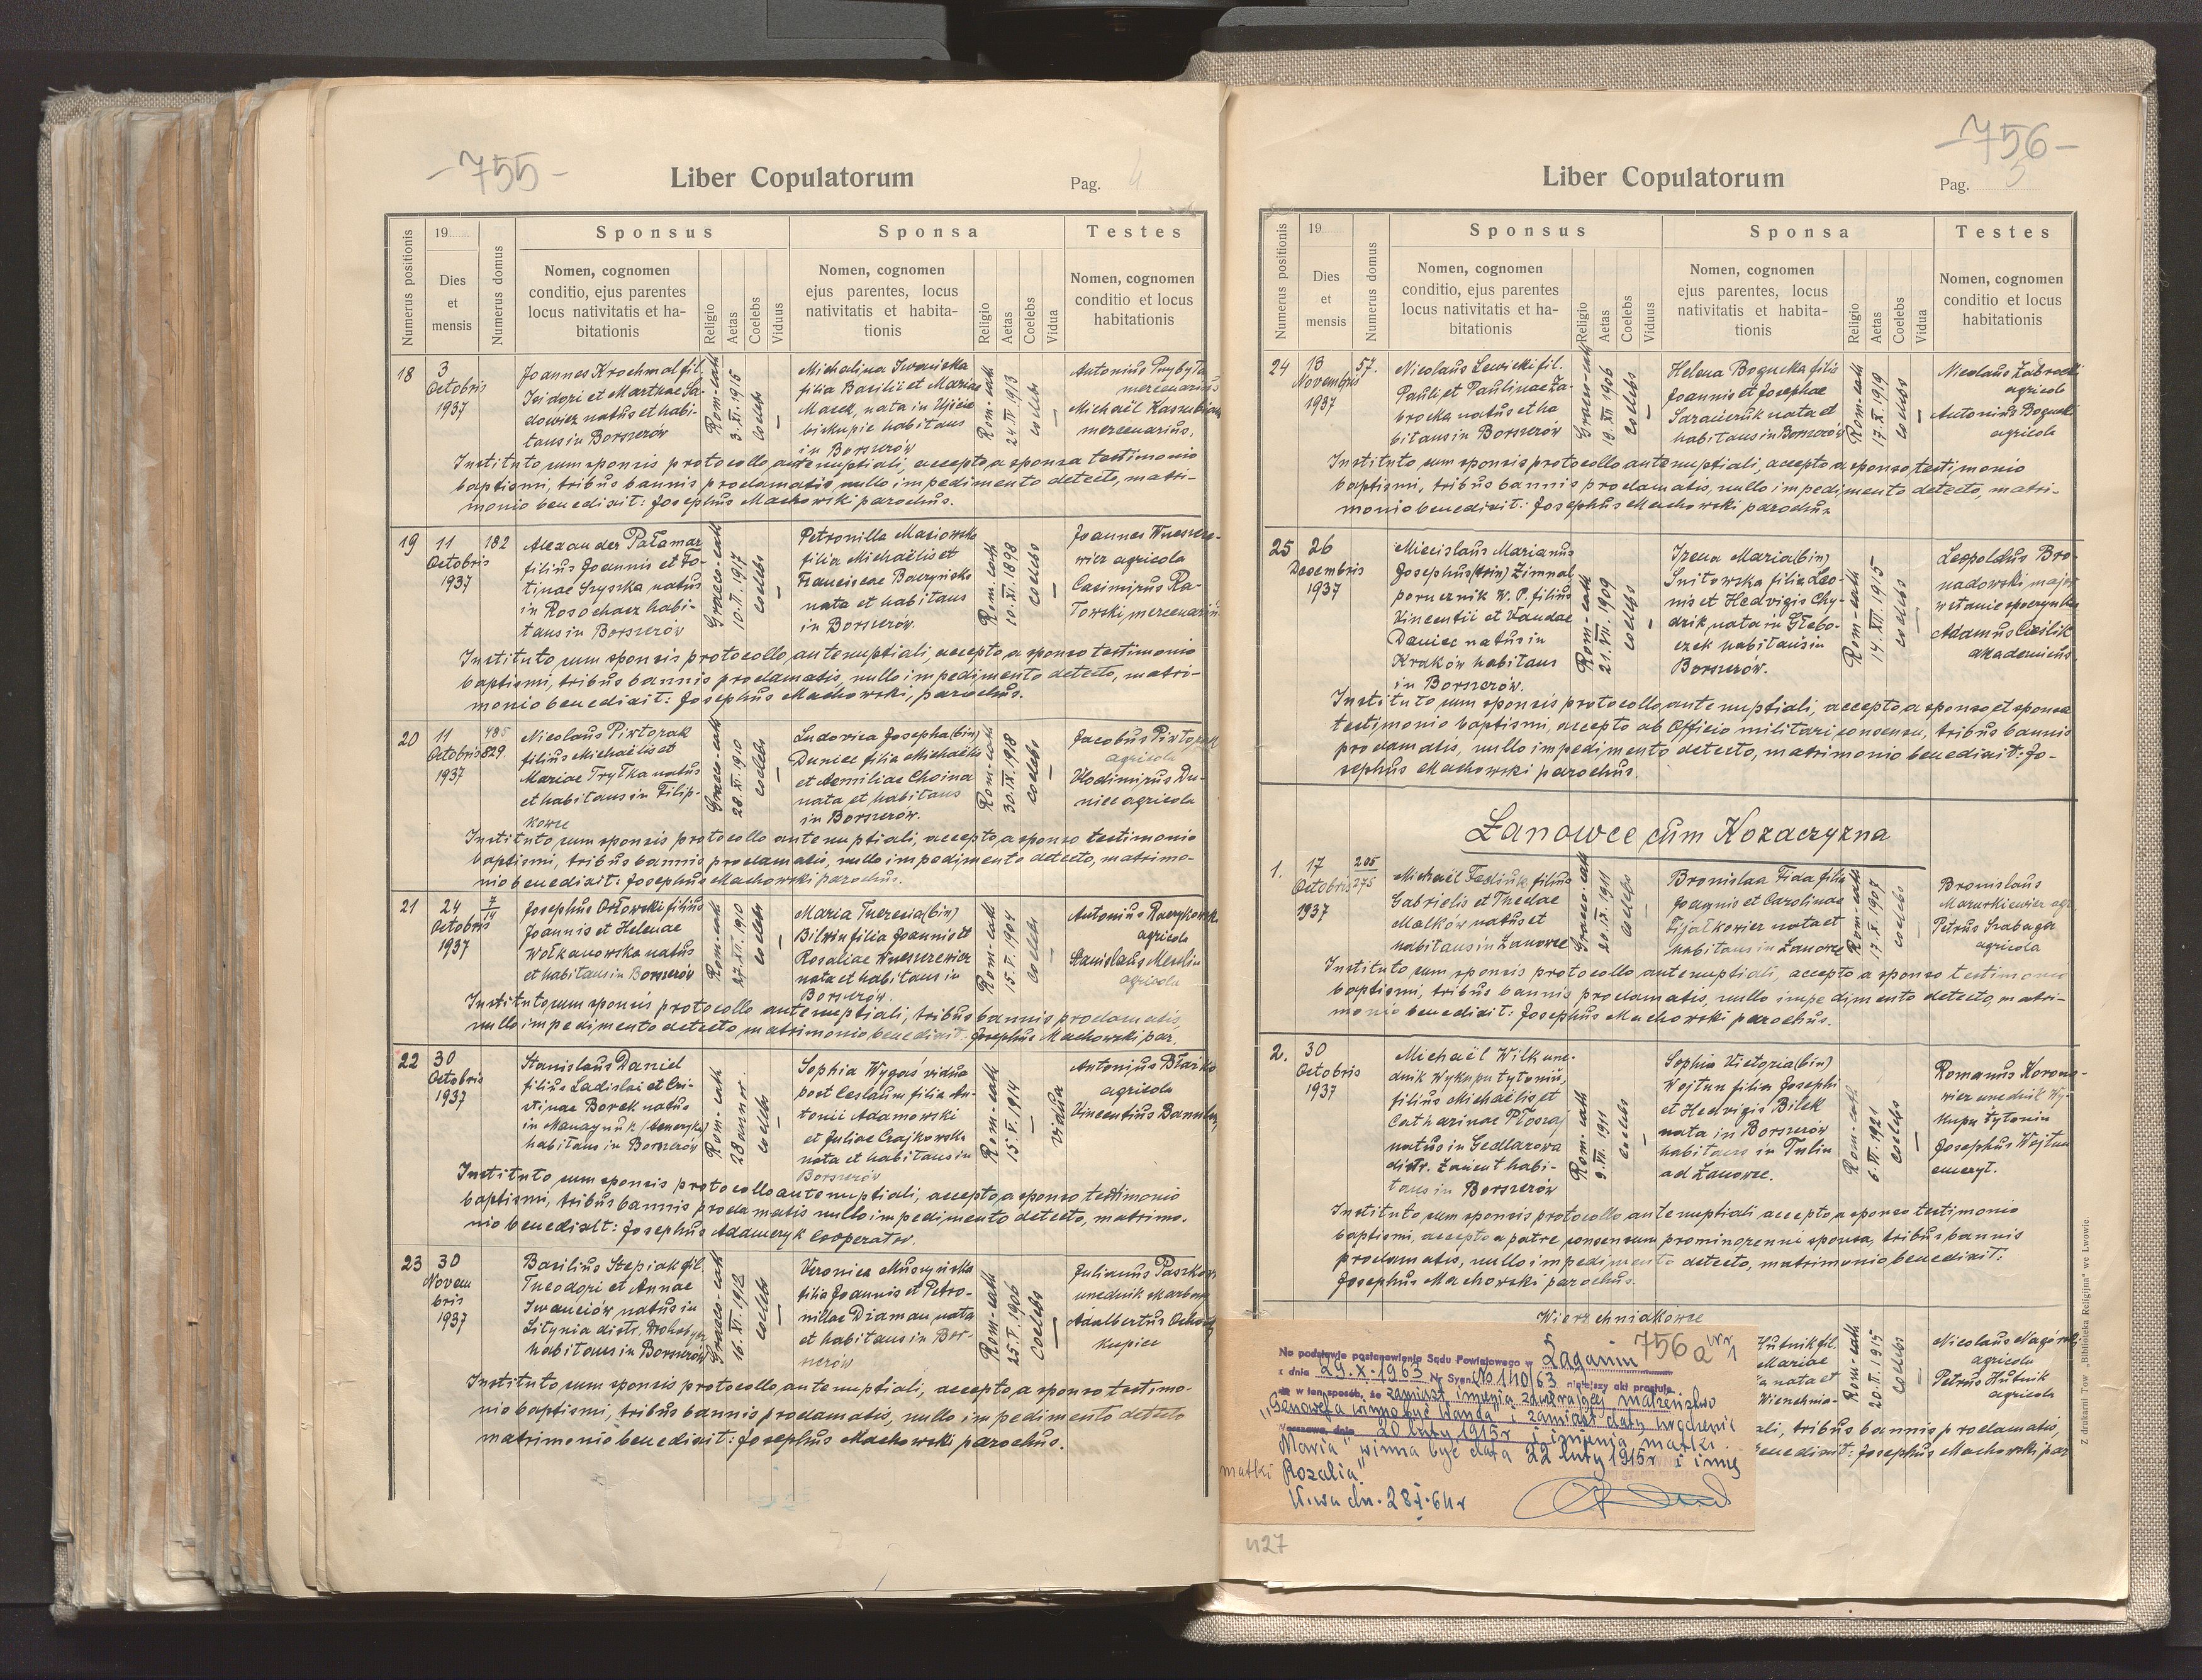 - 755 -
Liber Copulatorum
Pag. 4
Numerus positionis
19
Dies
et
mensis
Numerus domus
Sponsus
Nomen, cognomen
conditio, ejus parentes
locus nativitatis et ha-
bitationis
Religio
Aetas
Coelebs
Viduus
Sponsa
Nomen, cognomen
ejus parentes, locus
nativitatis et habita-
tionis
Religio
Aetas
Coelebs
Vidua
Testes
Nomen, cognomen
conditio et locus
habitationis
18
3
Octobris
1937
Joannes Krochmal fil.
Isidori et Marthae Sa-
dowicz natus et habi-
tans in Borszczów
Rom-cath
3.XI.1915
coelebs
Michalina Iwańska
filia Basilii et Mariae
Macek, nata in Ujście
biskupie habitans
in Borszczów
Rom-cath
24.IV.1913
coelebs
Antonius Przybyła
mercenarius
Michaël
mercenarius,
Instituto cum sponsis protocollo antenuptiali, accepto a sponsa testimonio
baptismi, tribus bannis proclamatis nullo impedimento detecto, matri-
monio benedixit: Josephus Machowski parochus.
19
11
Octobris
1937
182
Alexander Pałamar
filius Joannis et Fo-
tinae natus
in Rosochacz habi-
tans in Borszczów
Graeco-cath
10.II.1917
coelebs
Petronilla Masiowska
filia Michaëlis et
Franciscae Baczyńska
nata et habitans
in Borszczów.
Rom-cath
10.XI.1898
coelebs
Joannes Wueszcze-
wicz agricola
Casimirus Ra-
Towski, mercenarius
Instituto cum sponsis protocollo, antenuptiali, accepto a sponso testimonio
baptismi, tribus bannis proclamatis, nullo impedimento detecto, matri-
monio benedixit: Josephus Machowski, parochus.
20
11
Octobris
1937
485
829.
Nicolaus Piwtorak
filius Michaëlis et
Mariae Tryłka natus
et habitans in Filip-
kowce
Graeco-cath
28.XI.1910
coelebs
Ludovica Josepha (bin)
Duniec filia Michaëlis
et Aemiliae Choina
nata et habitans
in Borszczów.
Rom-cath
30.IX.1918
coelebs
Jacobus Piwtorak
agricola
Vlodimirus Du-
niec agricola
Instituto cum sponsis protocollo antenuptiali, accepto a sponso testimonio
baptismi, tribus bannis proclamatis, nullo impedimento detecto, matrimo-
nio benedixit: Josephus Machowski parochus.
21
24
Octobris
1937
7
14
Josephus Orłowski filius
Joannis et Helenae
Wołkanowska natus
et habitans in Borszczów
Rom-cath
27.XII.1910
coelebs
Maria Theresia (bin)
Bilwin filia Joannis et
Rosaliae Wueszczewicz
nata et habitans in
Borszczów.
Rom-cath
15.V.1904
coelebs
Antonius
agricola
Stanislaus
agricola
Instituto cum sponsis protocollo antenuptiali, tribus bannis proclamatis
nullo impedimento detecto, matrimonio benedixit: Josephus Machowski par.
22
30
Octobris
1937
Stanislaus Daniel
filius Ladislai et Cri-
stinae Borek natus
in (Ameryka)
habitans in Borszczów
Rom-cath
28 annor.
coelebs
Sophia Wygaś vidua
post Ceslaum filia An-
tonii Adamowski
et Juliae Czajkowska
nata et habitans in
Borszczów
Rom-cath
15.V.1914
vidua
Antonius
agricola
Vincentius
Instituto cum sponsis protocollo antenuptiali, accepto a sponso testimonio
baptismi, tribus bannis proclamatis nullo impedimento detecto, matrimo-
nio benedixit: Josephus Adamczyk Cooperator.
23
30
Novem
bris
1937
Basilius Stepiak fil
Theodori et Annae
Iwanciów, natus in
Litynia distr. Drohobycz
habitans in Borszczów
Graeco-cath
16.XI.1912
coelebs
Veronica Muszyńska
filia Joannis et Petro-
nillae Dziaman nata
et habitans in Bor-
szczów
Rom-cath
25.V.1906
Coelebs
Julianus
urzędnik skarbowy
Adalbertus
kupiec
Instituto cum sponsis protocollo, antenuptiali, accepto a sponso testimo-
nio baptismi, tribus bannis proclamatis, nullo impedimento detecto
matrimonio benedixit: Josephus Machowski parochus.
- 756 -
Liber Copulatorum
Pag. 5
Numerus positionis
19
Dies
et
mensis
Numerus domus
Sponsus
Nomen, cognomen
conditio, ejus parentes
locus nativitatis et ha-
bitationis
Religio
Aetas
Coelebs
Viduus
Sponsa
Nomen, cognomen
ejus parentes, locus
nativitatis et habita-
tionis
Religio
Aetas
Coelebs
Vidua
Testes
Nomen, cognomen
conditio et locus
habitationis
24
13
Novembris
1937
57.
Nicolaus Lewicki fil.
Pauli et Paulinae Za-
brocka natus et ha
bitans in Borszczów
Graeco-cath
19.XII.1906
coelebs
Helena Bogucka filia
Joannis et Josephae
Saranczuk nata et
habitans in Borszczów
Rom-cath
17.X.1919
coelebs
Nicolaus Zabrocki
agricola
Antonius Bogucki
agricola
Instituto cum sponsis protocollo antenuptiali, accepto a sponso testimonio
baptismi, tribus bannis proclamatis, nullo impedimento detecto, matri-
monio benedixit: Josephus Machowski parochus
25
26
Decembris
1937
Miecislaus Marianus
Josephus (trin) Zimnal
porucznik W.P. filius
Vincentii et Vandae
Daniec natus in
Kraków habitans
in Borszczów.
Rom-cath
21.VII.1909
coelebs
Irena Maria (bin)
Snitowska filia Leo-
nis et Hedvigis Chy-
dzik, nata in Głębo-
czek habitans in
Borszczów.
Rom-cath
14.XII.1915
coelebs
Leopoldus Bro-
nadowski major
w stanie spoczynku
Adamus
akademicus.
Instituto cum sponsis protocollo antenuptiali, accepto a sponso et sponsa
testimonio baptismi, accepto ab Officio militari consensu, tribus bannis
proclamatis, nullo impedimento detecto, matrimonio benedixit: Jo-
sephus Machowski parochus.
Łanowce cum Kozaczyzna
1.
17
Octobris
1937
205
275
Michaël filius
Gabrielis et Theclae
Małków natus et
habitans in Łanowce
Graeco-cath
20.IX.1911
coelebs
Bronislaa Fiaa filia
Joannis et Carolinae
Fijałkowicz nata et
habitans in Łanowce
Rom-cath
17.X.1907
coelebs
Bronislaus
Mazurkiewicz agr.
Petrus
agricola
Instituto cum sponsis protocollo antenuptiali, accepto a sponso testimonio
baptismi, tribus bannis proclamatis, nullo impedimento detecto, matri-
monio benedixit: Josephus Machowski parochus.
2.
30
Octobris
1937
Michaël Wilk urzę-
dnik wykupu tytoniu,
filius Michaëlis et
Catharinae Płoszaj
natus in Gedlarowa
distr. Łańcut habi-
tans in Borszczów
Rom-cath
9.VI.1911
coelebs
Sophia Victoria (bin)
Wojtun filia Josephi
et Hedvigis Bilek
nata in Borszczów
habitans in Tulin
ad Łanowce.
Rom-cath
6.VI.1921
coelebs
Romanus Korone-
wicz urzędnik Wy-
kupu tytoniu
Josephus Wojtun
emeryt.
Instituto cum sponsis protocollo antenuptiali accepto a sponso testimonio
baptismi, accepto a patre consensum pro minorenni sponsa, tribus bannis
proclamatis, nullo impedimento detecto, matrimonio benedixit:
Josephus Machowski parochus.
Wierzchniakowce
Hutnik fil.
Mariae
nata et
Wierzchnia-
Rom-cath
20.II.1915
coelebs
Nicolaus
agricola
Petrus Hutnik
agricola
ali, tribus bannis proclamatis,
benedixit: Josephus Machowski par
756 a
Na podstawie postanowienia Sądu Powiatowego w Żaganiu
z dnia 29.X.1963 Nr Sygn. No 140/63 niniejszy akt prostuje
się w ten sposób, że zamiast imienia zawierającej małżeństwo
"Genowefa winno być Wanda" i zamiast daty urodzenia
Warszawa, dnia 20 luty 1915r i imienia matki
"Maria" winna być data 22 luty 1915r i imię
matki Rozalia"
W.wa dn. 28.I.64r
427
Z drukarni Tow. „Bibljoteka Religijna" we Lwowie.